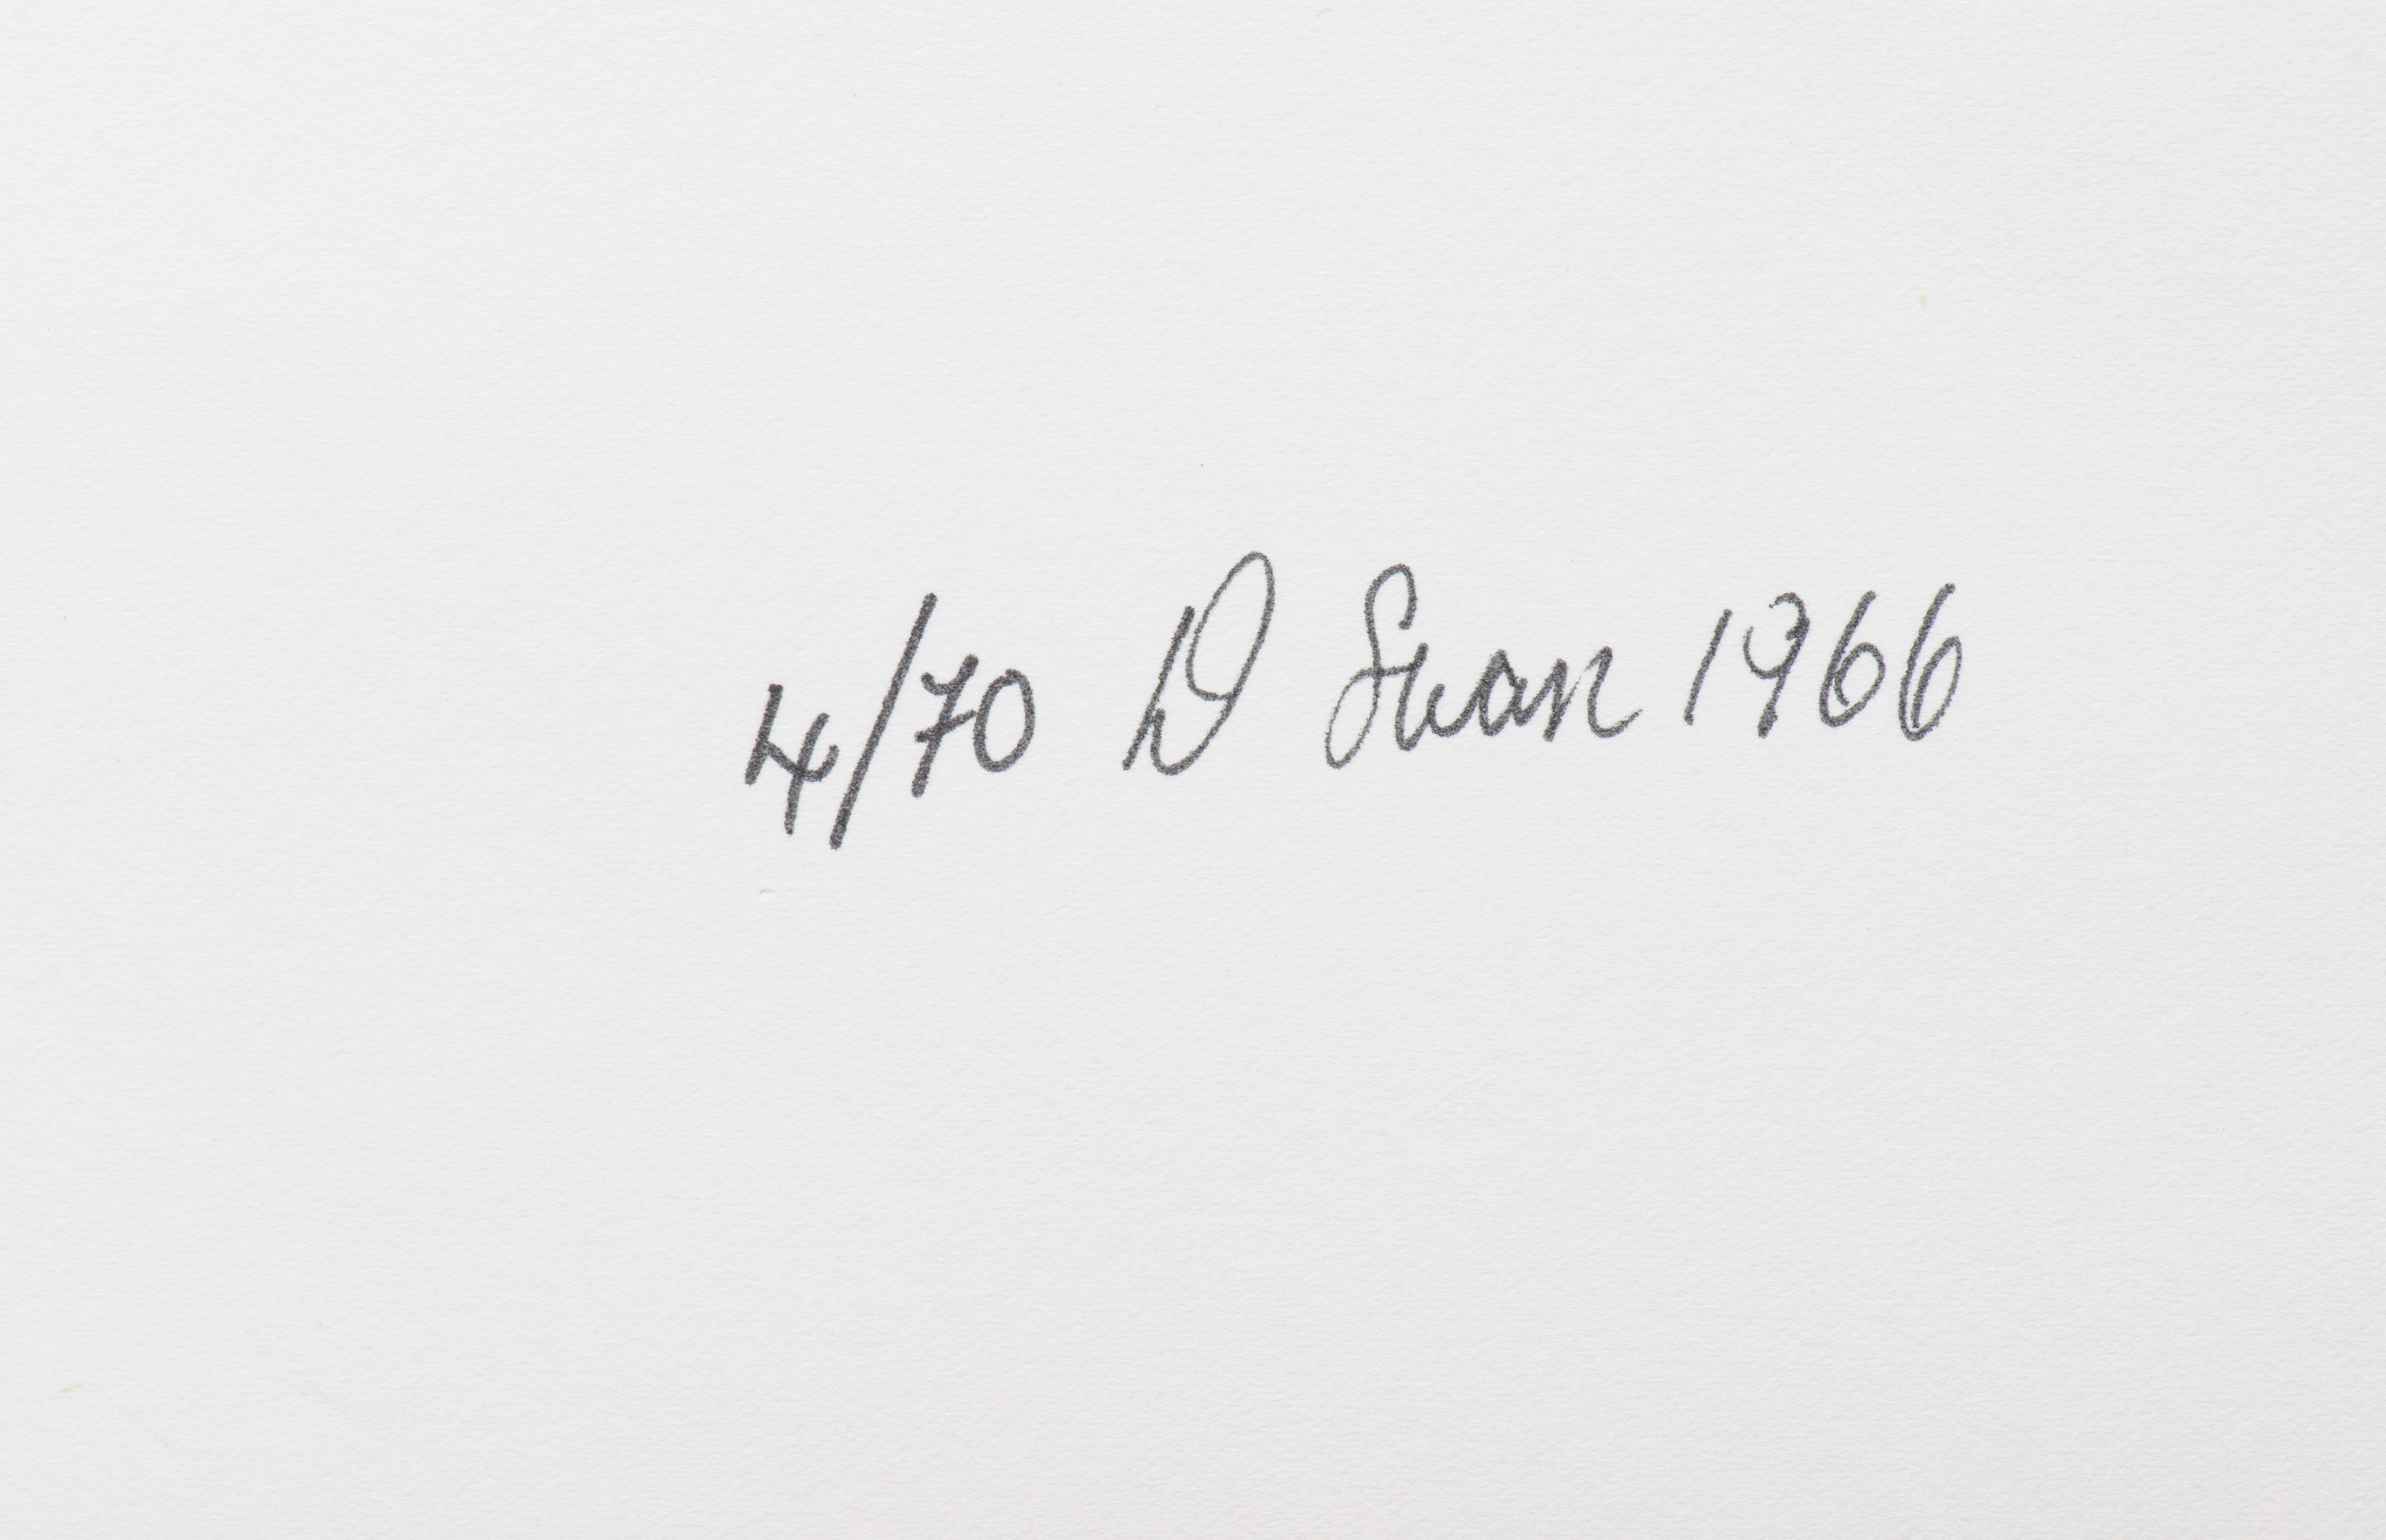 4/70 D Swan 1966